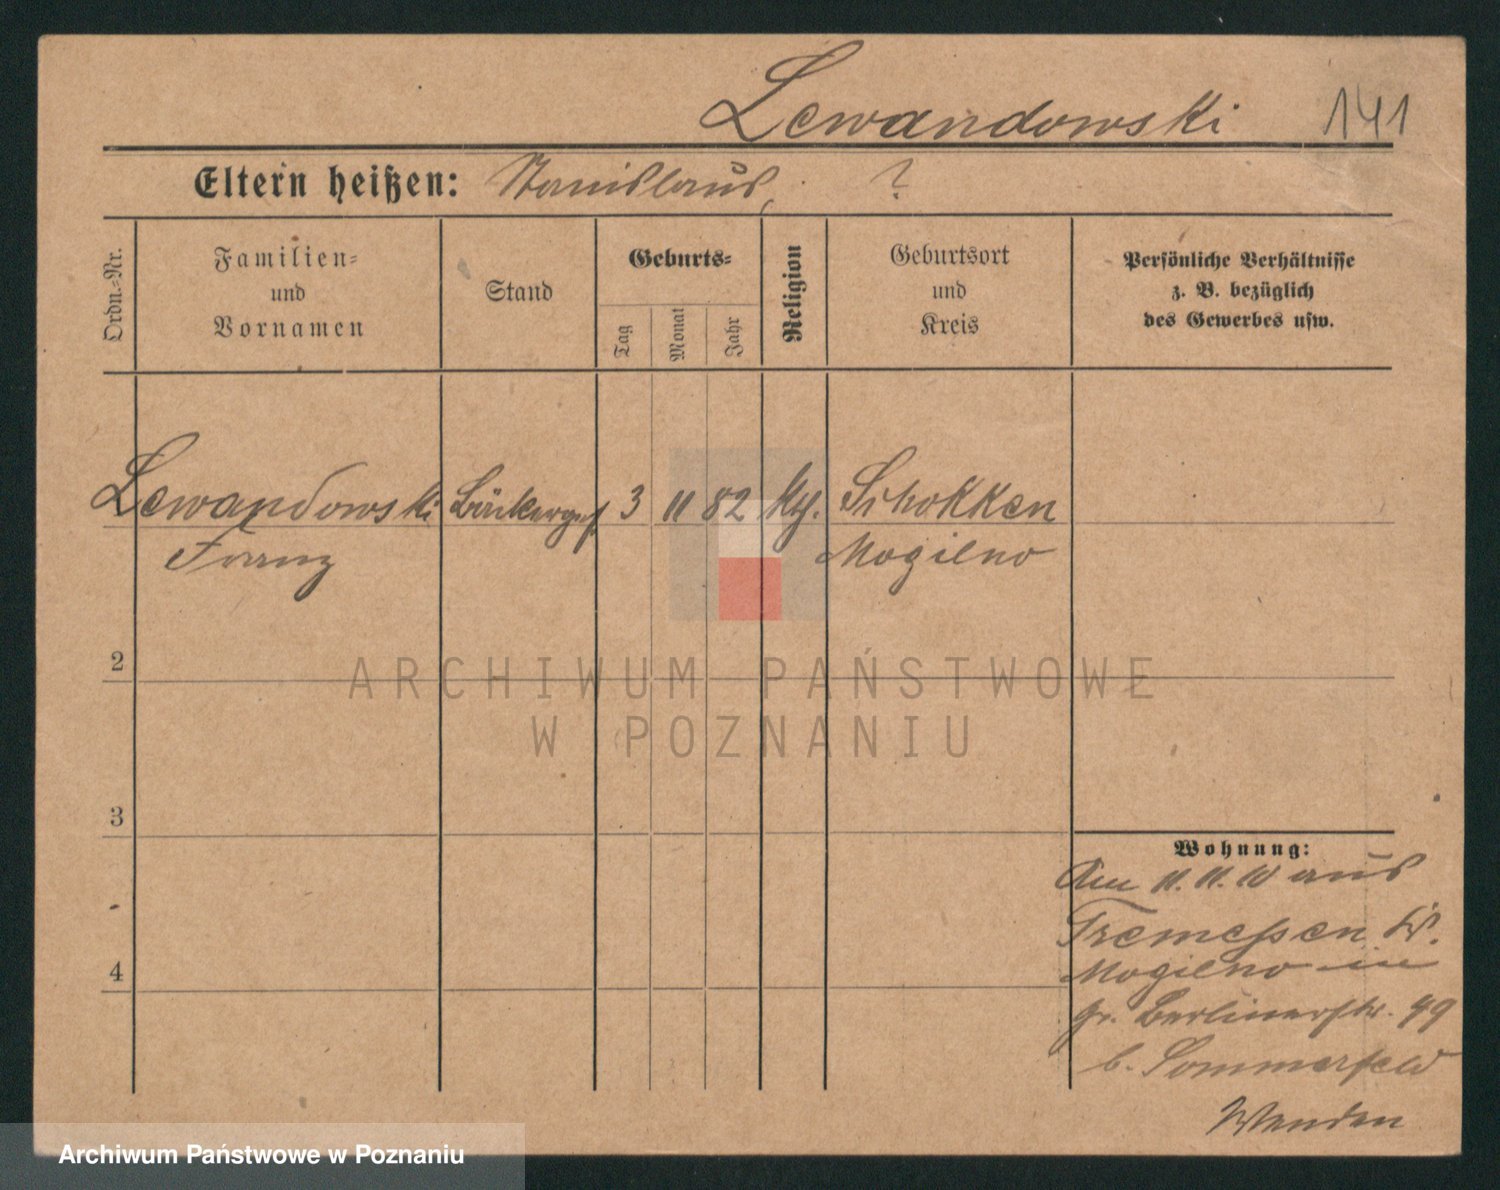 Lewandowski 141
Eltern heißen: Stanislaus, ?
Ordn.-Nr.
Familien-
und
Vornamen
Stand
Geburts-
Tag
Monat
Jahr
Religion
Geburtsort
und
Kreis
Persönliche Verhältnisse
z. B. bezüglich
des Gewerbes usw.
Lewandowski Bäckerges 3 11 82 Schokken
Franz Mogilno
2
3
4
Wohnung:
Am 11.11.10 aus
Tremessen Kr.
Mogilno in
gr. Berlinerstr. 49
b. Sommerfeld
Wenden
ARCHIWUM PAŃSTWOWE
W POZNANIU
Archiwum Państwowe w Poznaniu